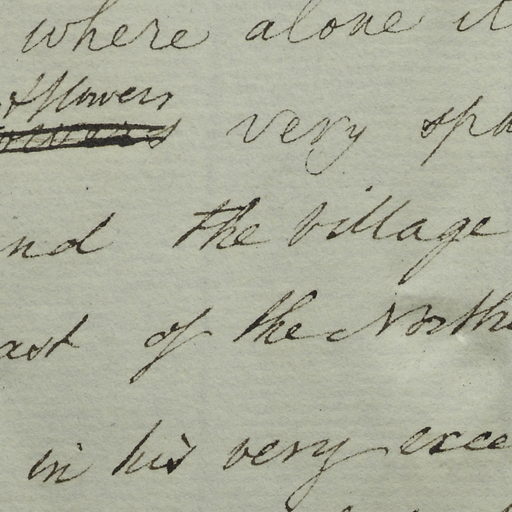 where alone it
& flowers
very spa
nd the Village
ast of the Northe
in his very exce